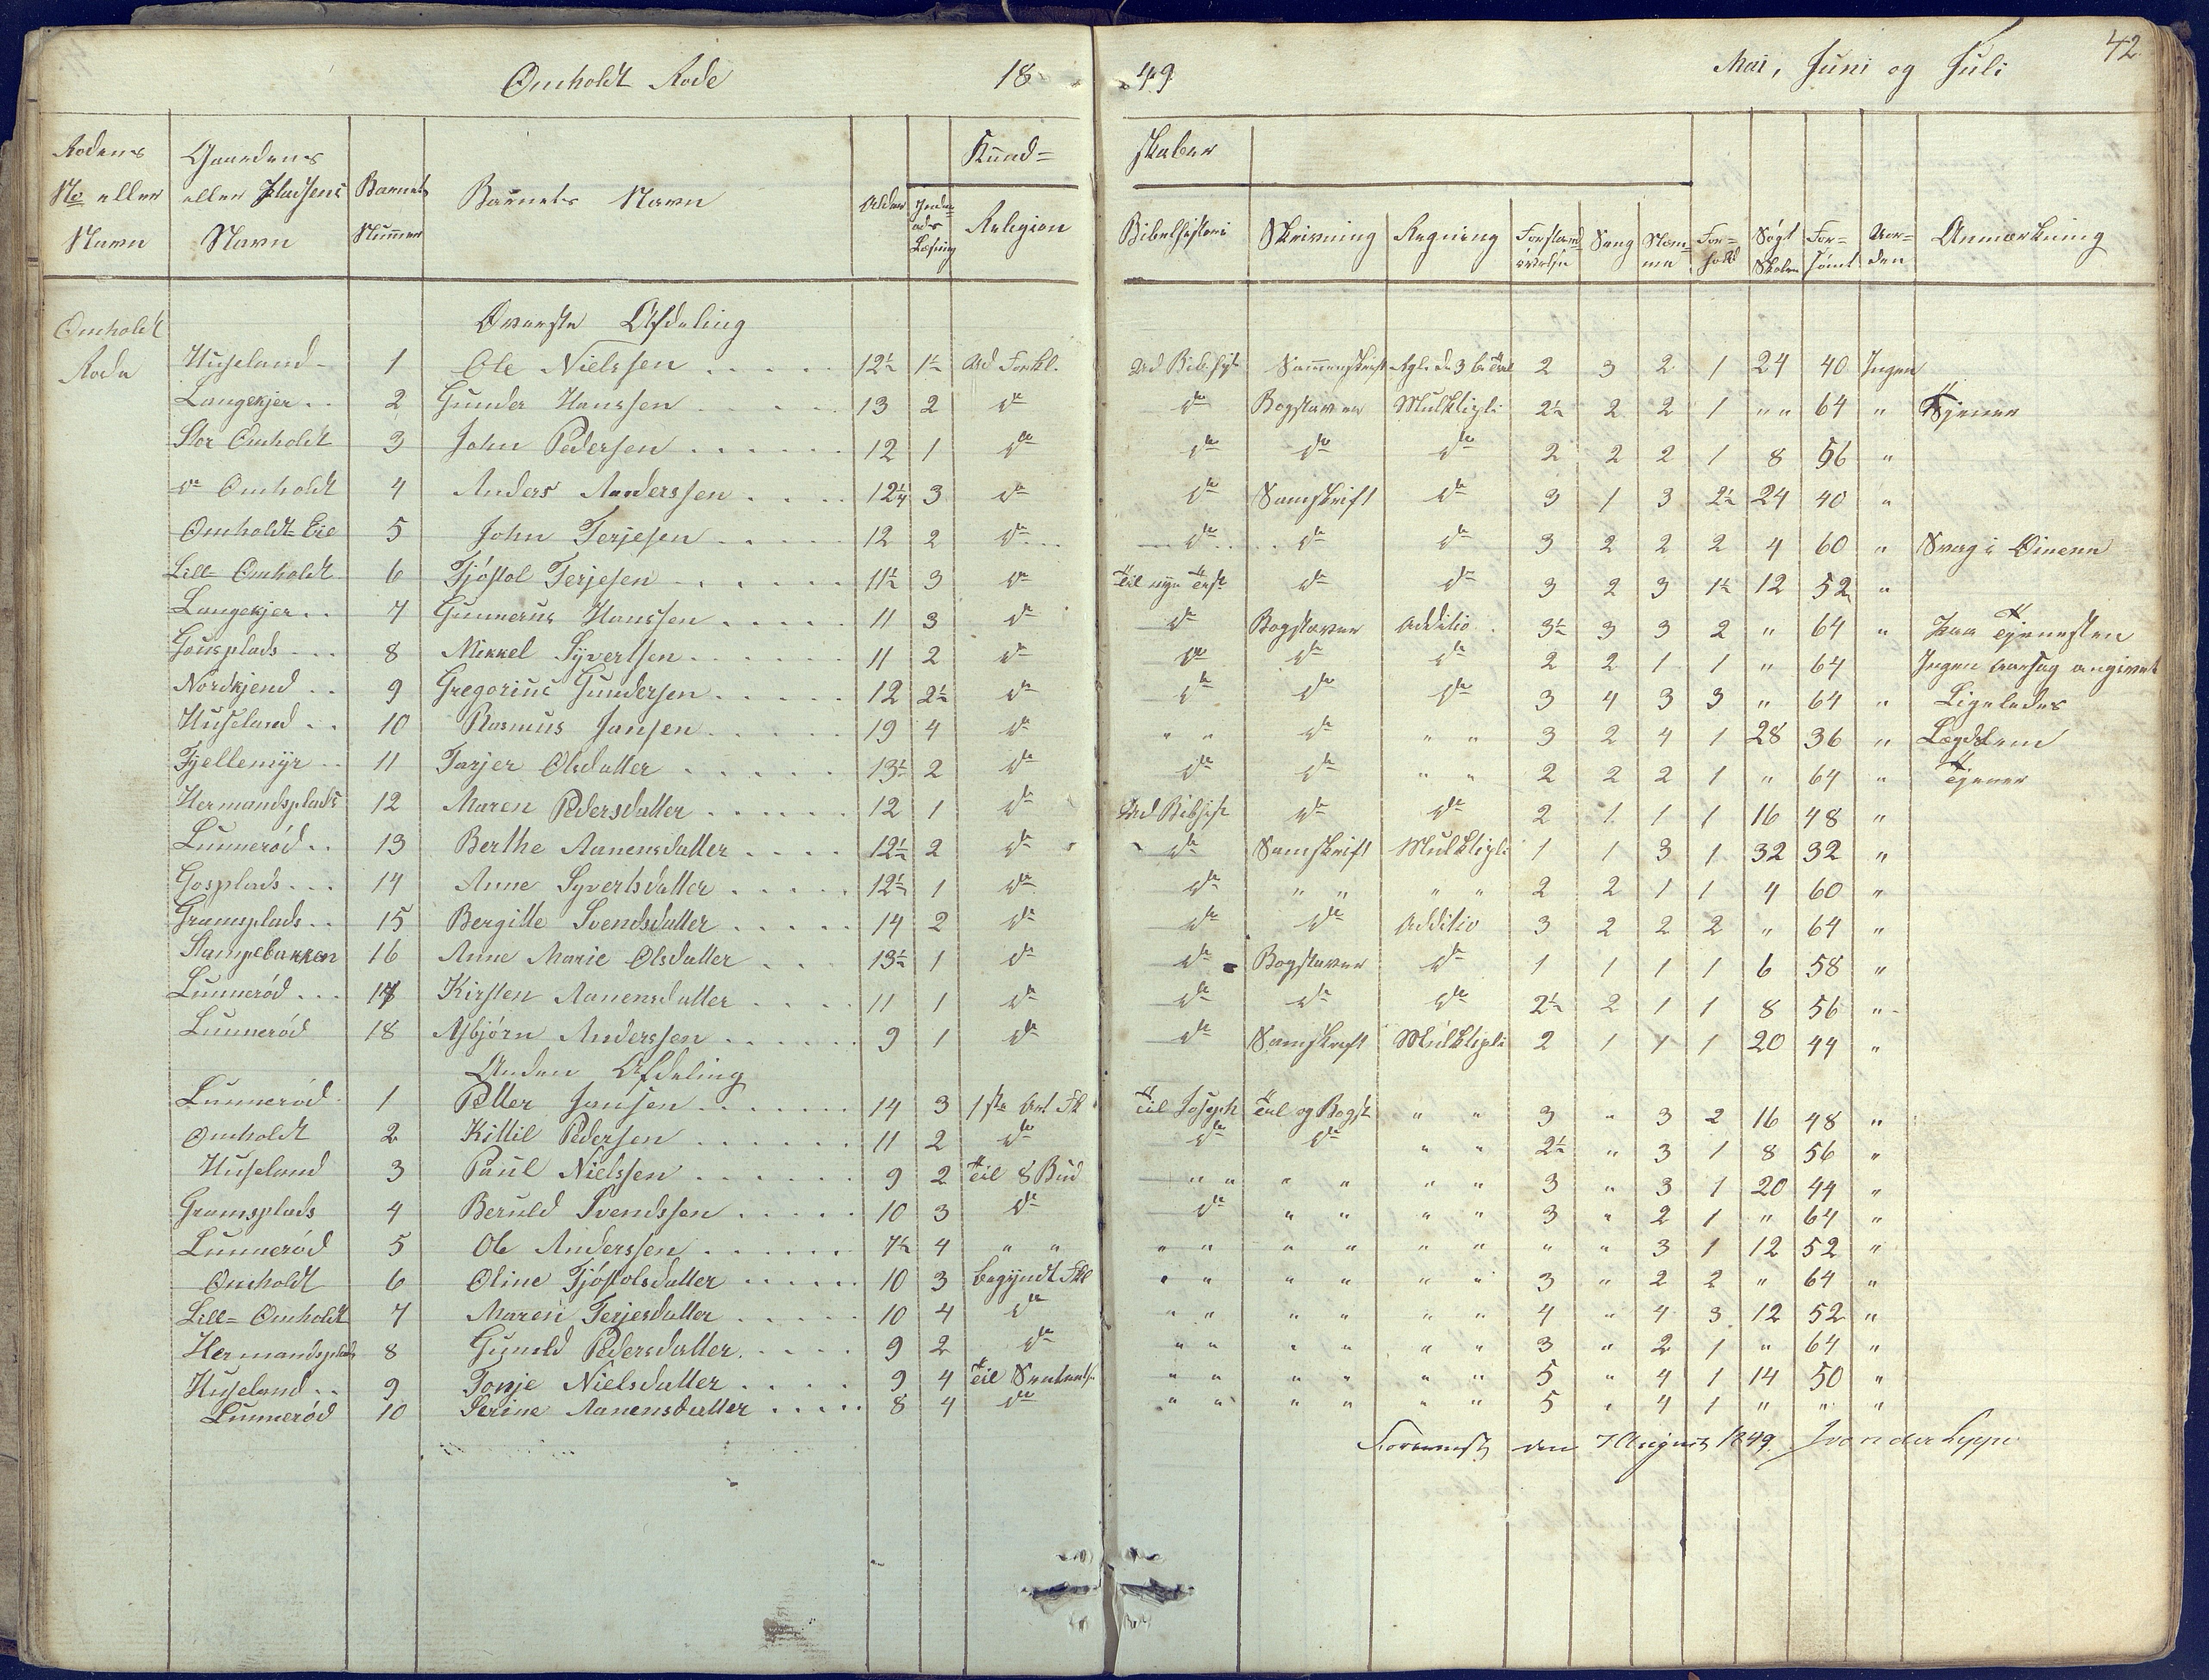 Omholdt Rode 18 49 Mai, Juni og Juli 42
Kund= skaber
Rodens No eller Navn | Gaardens eller Pladsens Navn | Barnets Nummer | Barnets Navn | Alder | Inden= ads Læsning | Religion | Bibelhistorie | Skrivning | Regning | Forstands øvelse | Sang | Stem= me | For= hold | Søgt Skolen | For= sømt | Uor= den | Anmærkning
Omholdt Rode
Øverste Afdeling
Huseland | 1 | Ole Nielssen | 12½ | 1½ | Ud Forkl. | Ud Bib. hist | Sammenskrift | Rgl. de 3 | 2 | 3 | 2 | 1 | 24 | 40 | Ingen
Langekjer | 2 | Gunder Hanssen | 13 | 2 | do | do | Bogstaver | Multipli | 2½ | 2 | 2 | 1 | " " | 64 | " | Tjener
Stor Omholdt | 3 | John Pedersen | 12 | 1 | do | do | do | do | 2 | 2 | 2 | 1 | 8 | 56 | "
do Omholdt | 4 | Anders Anderssen | 12¼ | 3 | do | do | Samskrift | do | 3 | 1 | 3 | 2½ | 24 | 40 | "
Omholdt=Eie | 5 | John Terjesen | 12 | 2 | do | do | do | do | 3 | 2 | 2 | 2 | 4 | 60 | " | Svag i Øinene
Lill= Omholdt | 6 | Tjøstol Terjesen | 11½ | 3 | do | Til nye Test. | do | do | 3 | 2 | 3 | 1½ | 12 | 52 | "
Langekjer | 7 | Gunnerus Hanssen | 11 | 3 | do | do | Bogstaver | Additio | 3½ | 3 | 3 | 2 | " | 64 | " | paa Tjenesten
Gousplads | 8 | Mikkel Syvertsen | 11 | 2 | do | do | do | do | 2 | 2 | 1 | 1 | " | 64 | Ingen Aarsag angivet
Nordkjend | 9 | Gregorius Gundersen | 12 | 2½ | do | do | do | do | 3 | 4 | 3 | 3 | " | 64 | " | Ligeledes
Huseland | 10 | Rasmus Jansen | 19 | 4 | do | " " | do | " " | 3 | 2 | 4 | 1 | 28 | 36 | " | Lægdslem
Fjellemyr | 11 | Tarjer Olsdatter | 13½ | 2 | do | do | do | " " | 2 | 2 | 2 | 1 | " | 64 | " | Tjener
Hermandsplads | 12 | Maren Pedersdatter | 12 | 1 | do | Ud Bibhist | do | do | 2 | 1 | 1 | 1 | 16 | 48 | "
Lunnerød | 13 | Berthe Aanensdatter | 12½ | 2 | do | do | Samskrift | Multipli | 1 | 1 | 3 | 1 | 32 | 32 | "
Gosplads | 14 | Anne Syvertsdatter | 12½ | 1 | do | do | " " | " " | 2 | 2 | 1 | 1 | 4 | 60 | "
Gramsplads | 15 | Bergitte Svendsdatter | 14 | 2 | do | do | do | Additio | 3 | 2 | 2 | 2 | " | 64 | "
Stampebakken | 16 | Anne Marie Olsdatter | 13½ | 1 | do | do | Bogstaver | do | 1 | 1 | 1 | 1 | 6 | 58 | "
Lunnerød | 17 | Kirsten Aanensdatter | 11 | 1 | do | do | do | do | 2½ | 2 | 1 | 1 | 8 | 56 | "
Lunnerød | 18 | Asbjørn Anderssen | 9 | 1 | do | do | Samskreft | Multipli | 2 | 1 | 1 | 1 | 20 | 44 | "
Anden Afdeling
Lunnerød | 1 | Petter Jansen | 14 | 3 | 1ste Art Fk | Til Joseph | Tal og Bogst | " " | 3 | " | 3 | 2 | 16 | 48 | "
Omholdt | 2 | Kittil Pedersen | 11 | 2 | do | do | do | " " | 2½ | " | 3 | 1 | 8 | 56 | "
Huseland | 3 | Paul Nielssen | 9 | 2 | Til 8 Bud | " " | " " | " " | 3 | " | 3 | 1 | 20 | 44 | "
Gramsplads | 4 | Beruld Svendssen | 10 | 3 | do | do | " " | " " | 3 | " | 2 | 1 | " | 64 | "
Lunnerød | 5 | Ole Anderssen | 7½ | 4 | " " | " " | " " | " " | " | " | 3 | 1 | 12 | 52 | "
Omholdt | 6 | Oline Tjøstolsdatter | 10 | 3 | begyndt Fkl | " " | " " | " " | 3 | " | 2 | 2 | " | 64 | "
Lill= Omholdt | 7 | Maren Terjesdatter | 10 | 4 | do | " " | " " | " " | 4 | " | 4 | 3 | 12 | 52 | "
Hermandsplads | 8 | Gunild Pedersdatter | 9 | 2 | do | " " | " " | " " | 3 | " | 2 | 1 | " | 64 | "
Huseland | 9 | Tonje Nielsdatter | 9 | 4 | Til | " " | " " | " " | 5 | " | 4 | 1 | 14 | 50 | "
Lunnerød | 10 | Serine Aanensdatter | 8 | 4 | do | " " | " " | " " | 5 | " | 4 | 1 | " | " | "
den 7 August 1849. J von der Lippe